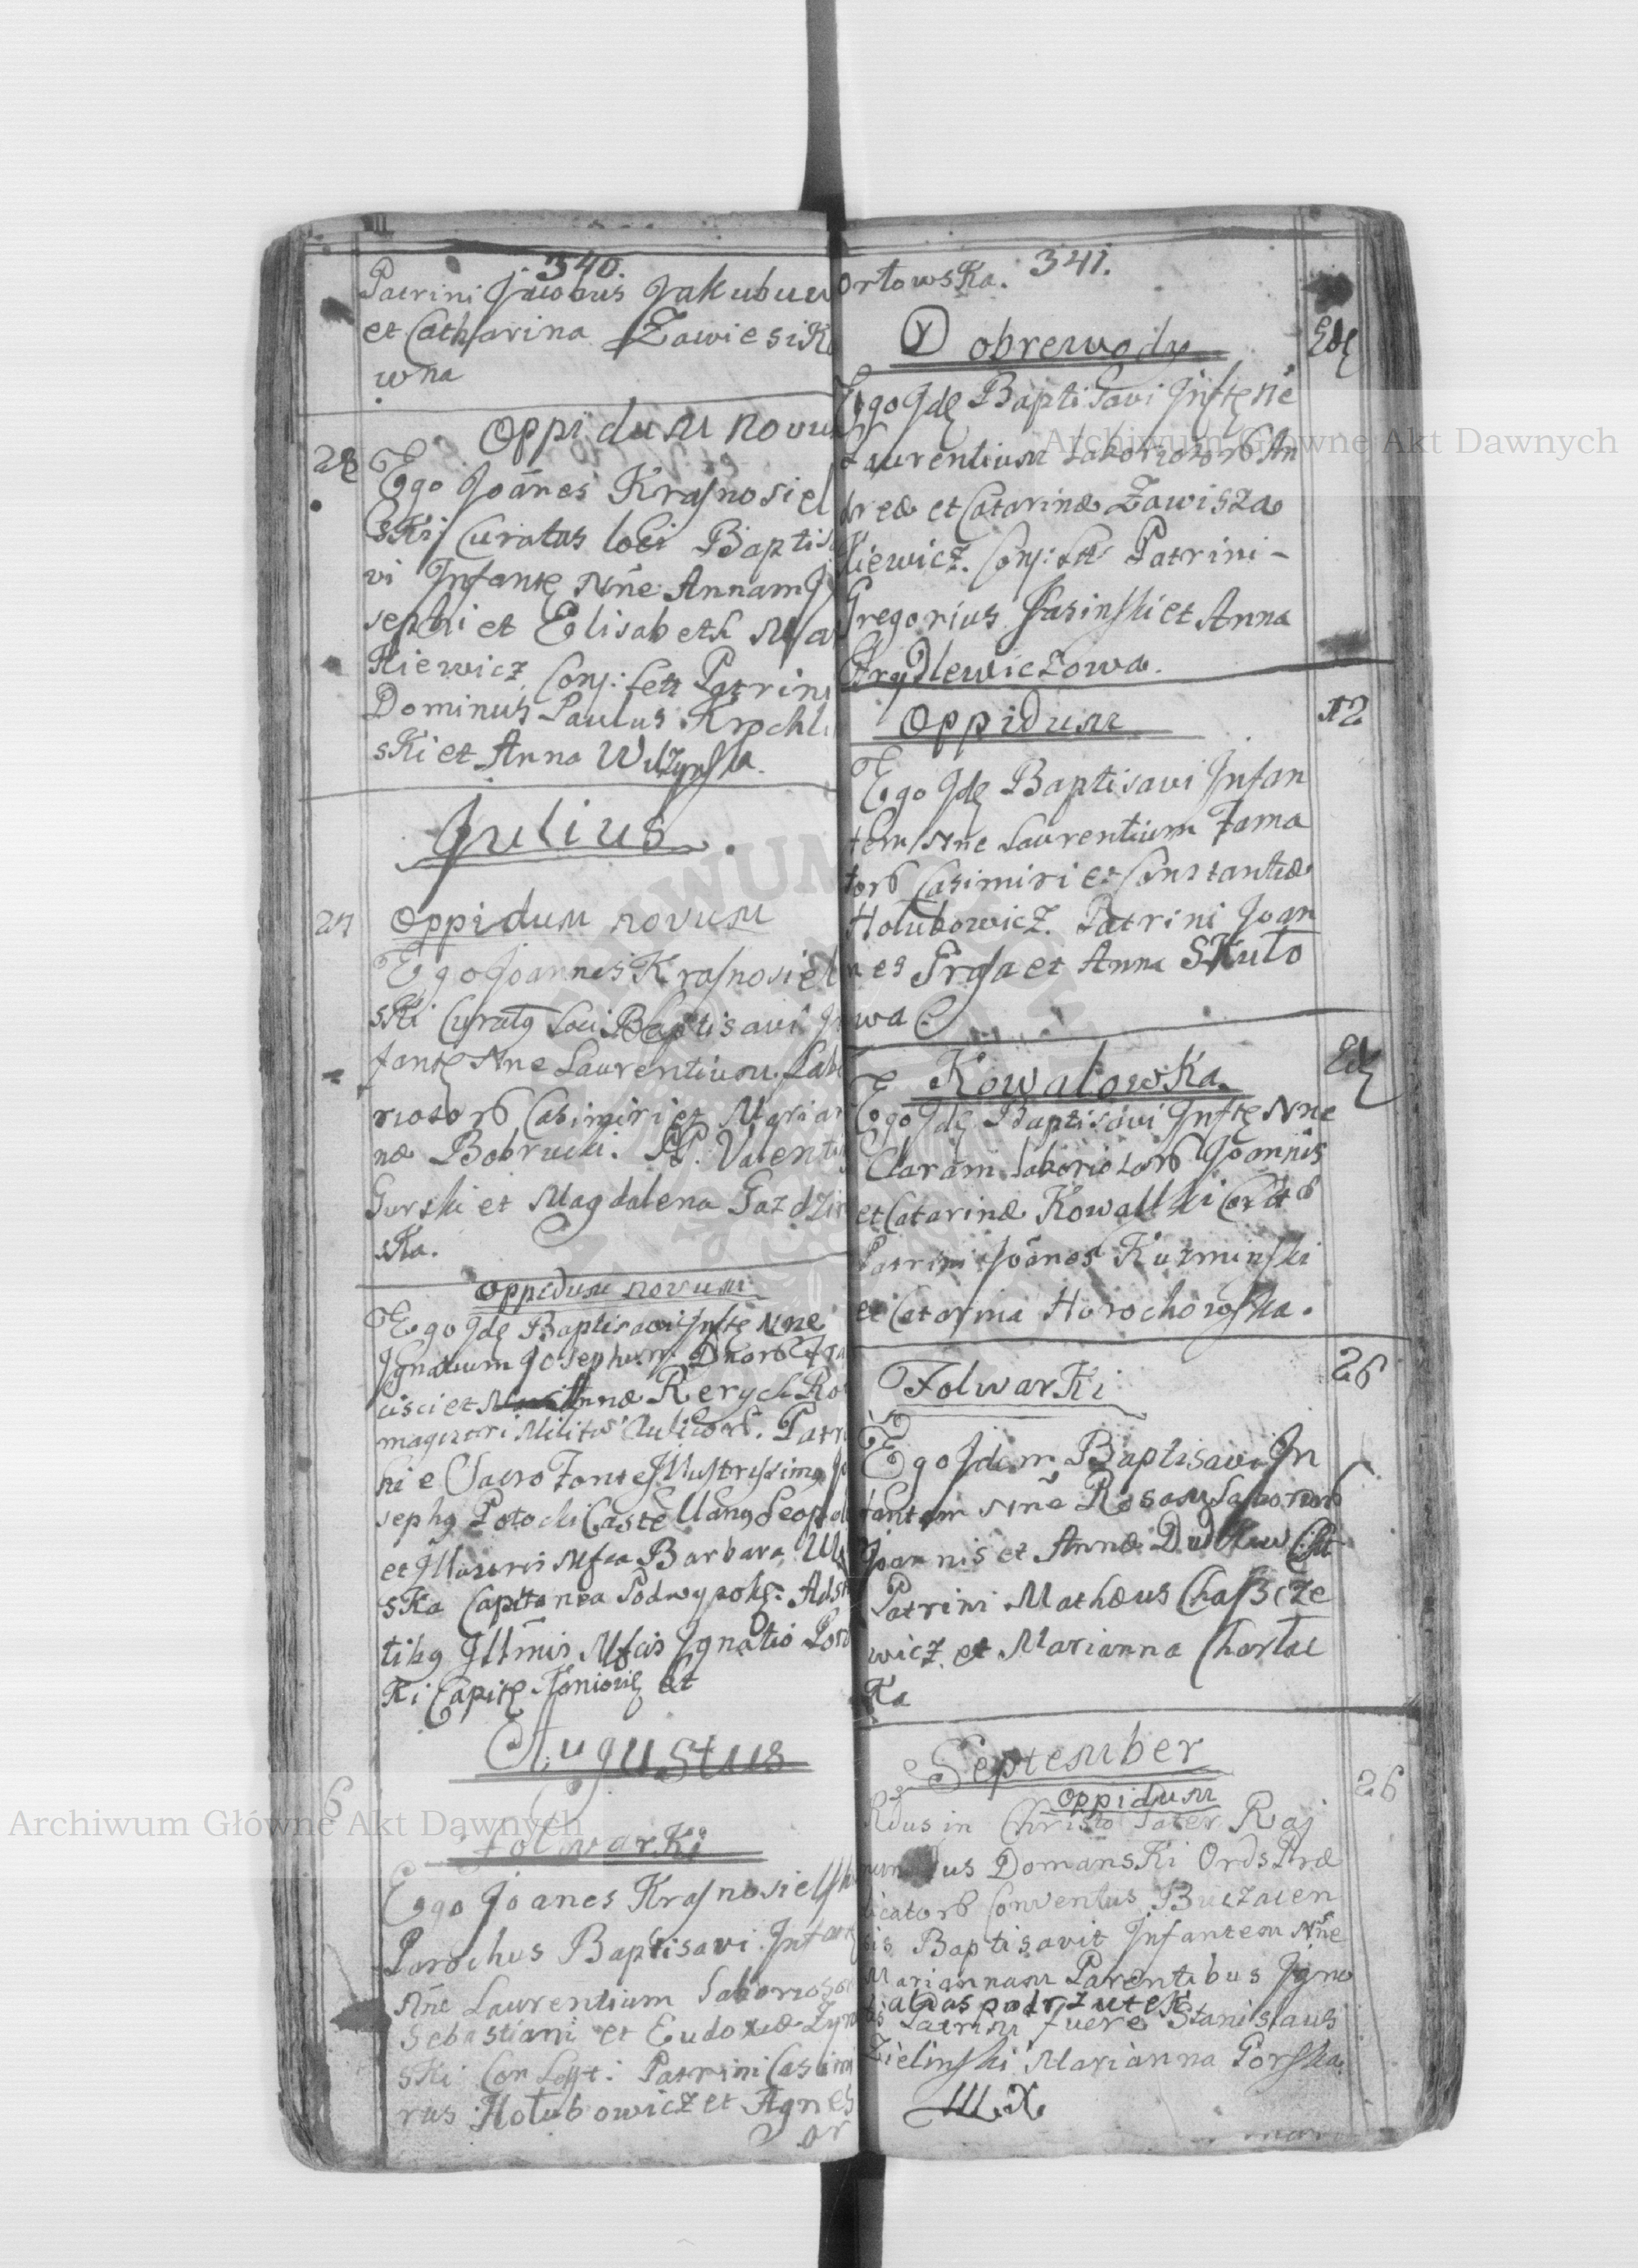 340.
Patrini Jacobus Jakubow
et Catharina Zawiesik
wna
Oppidum novu
28
Ego Joanes Krasnosiel
ski Curatus loci Baptisa
vi Infante Nne Annam J
sephi et Elisabeth Ma
Kiewicz Conj: Patrini
Dominus Paulus Krochli
ski et Anna
Julius
27
Oppidum novum
Ego Joannes Krasnosiel
ski Curatg Loci Baptisavi In
fante Nne Laurentium Labo
riosorb Casimiri et Marian
næ Bobrucki. PP. Valenti
Gurski et Magdalena Gazdzin
ska.
Oppidum novum
Ego Jde Baptisavi Infte Nne
Ignatium Josephum Dnorb Fra
cisci et Annæ Rerych Ro
magistri Militu Patri
ni e Sacro Fonte Illustrissimg Jo
sephg Potocki Castellang Leopol
et Illustris Mfca Barbara
ska Capitanea Adst
tibg Illmis Mfcis Ignatio Poto
ki et
Augustus
6
Folwarki
Ego Joanes Krasnosielsk
Parochus Baptisavi Infant
Nne Laurentium Laborioso
Sebastiani et Eudoxiæ
ski Con Legt: Patrini Casimi
rus Hołubowicz et Agnes
or
341.
Orłowska.
Dobrewody
Ego Jde Baptisavi Infte Ne
Laurentium Laboriosorb An
dreæ et Catarinæ Zawisza
kiewicz. Conj: Patrini -
Gregorius Jasinski et Anna
Frydlewiczowa.
Oppidum
12
Ego Jde Baptisavi Infan
tem Nne Laurentium Fama
torb Casimiri et Constantiæ
Holubowicz. Patrini Joan
nes et Anna Skuło
wa
Kowalowka.
Ego Jde Baptisavi Infte Nne
Claram Laboriosorb Joannis
et Catarinæ Kowalski
Patrini Joanes Kuzminski
et Catarina Horochowska.
Folwarki
26
Ego Idem Baptisavi In
fantem Nne Rosam Laboriorb
Joannis et Annæ
Patrini Mathæus Chaszcze
wicz et Marianna Charłac
ka
September
26
Oppidum
Rdus in Christo Pater Raj
mundus Domanski Ords Præ
dicatorb Conventus Buczacen
sis Baptisavit Infantem Nne
Mariannam Parentibus Igno
tis alias podrzutek
Patrini fuere Stanislaus
Zielinski Marianna Gorska
Archiwum Główne Akt Dawnych
Archiwum Główne Akt Dawnych